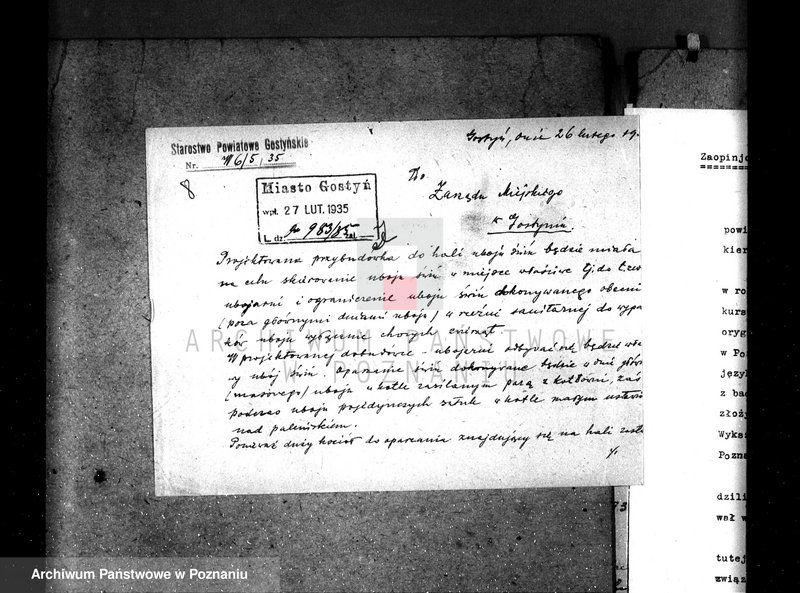 Starostwo Powiatowe Gostyńskie
Nr. 76/5/35
Gostyń, dnia 26 lutego 19
8
Do
Zarządu Miejskiego
w Gostyniu.
Miasto Gostyń
wpł. 27 LUT. 1935
L. dz. 983/35 zał.
Projektowana przybudówka do hali uboju świń będzie miała
na celu skierowanie uboju świń w miejsce właściwe tj. do t.zw
ubojarni i ograniczenie uboju świń dokonywanego obecnie
(poza głównymi dniami uboju) w rzeźni sanitarnej do wypa
ków uboju wyłącznie chorych zwierząt.
W projektowanej dobudówce - ubojarni odbywać się będzie
ny ubój świń. Oparzanie świń dokonywane będzie w dni główn
(masowego) uboju w kotle zasilanym parą z kotłowni, zaś
podczas uboju pojedynczych sztuk w kotle małym ustawio
nad paleniskiem.
Ponieważ duży kocioł do oparzania znajdujący się na hali
ARCHIWUM PAŃSTWOWE
W POZNANIU
Zaopinjo
powi
kier
w ro
kurs
oryg
w Po
język
z bad
złoży
Wykaz
Pozna
dzili
wał w
tutej
związ
73
Archiwum Państwowe w Poznaniu